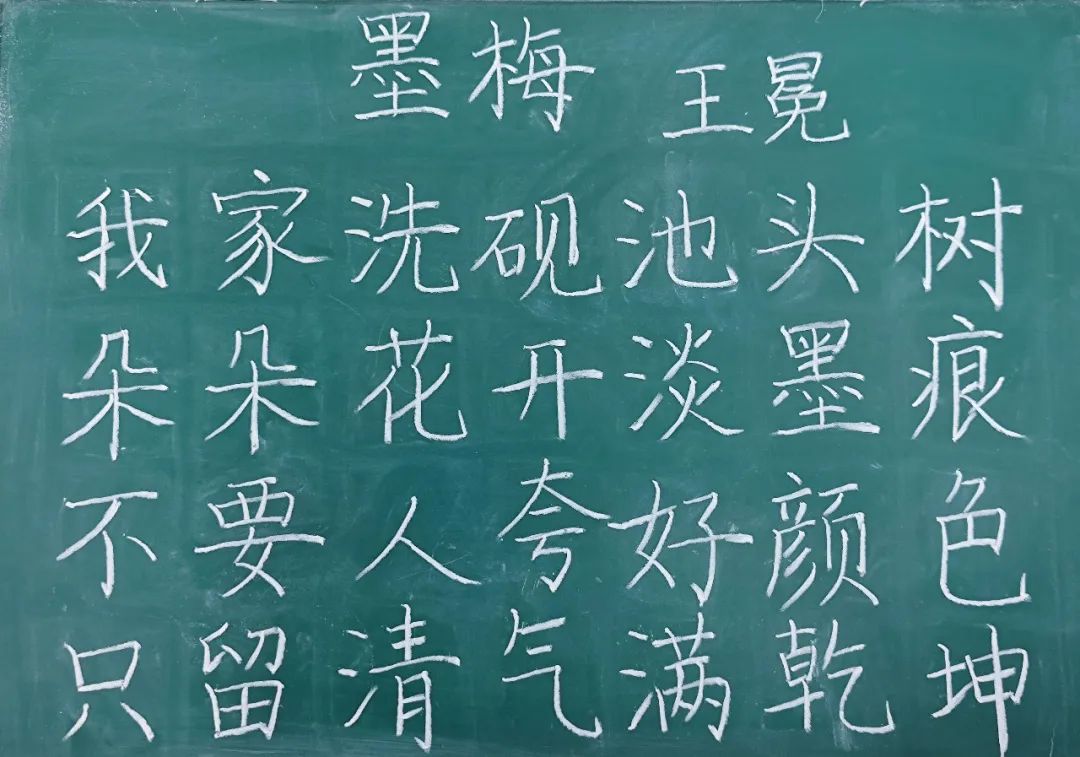 墨梅 王冕
我家洗砚池头树
朵朵花开淡墨痕
不要人夸好颜色
只留清气满乾坤